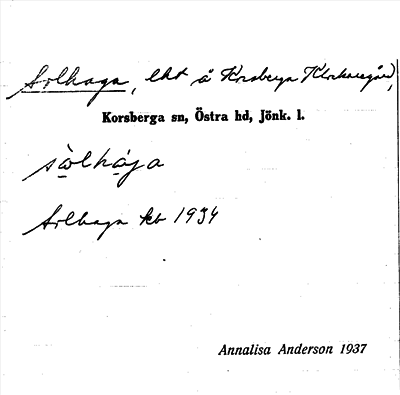 Solhaga, lht å Korsberga Klockaregård,
Korsberga sn, Östra hd, Jönk. l.
sòlhága
Solhaga kb 1934
Annalisa Anderson 1937